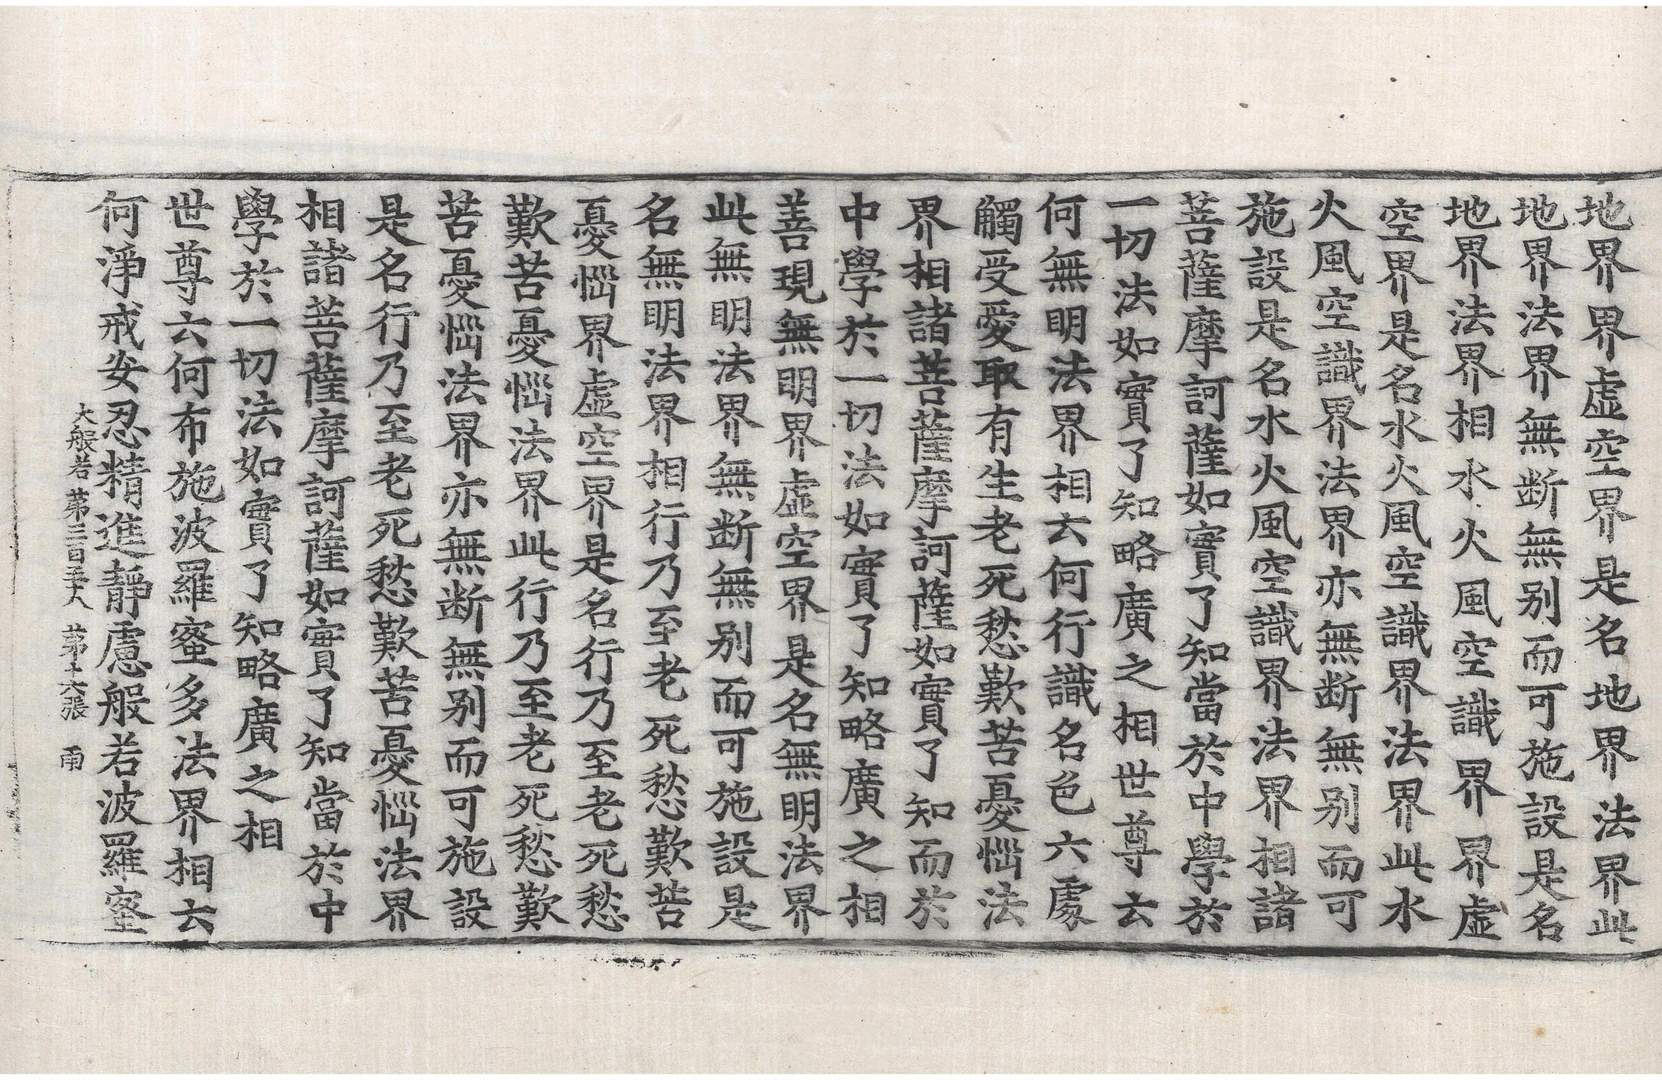 地界界虛空界是名地界法界此
地界法界無断無别而可施設是名
地界法界相水火風空識界界虛
空界是名水火風空識界法界此水
火風空識界法界亦無断無别而可
施設是名水火風空識界法界相諸
菩薩摩訶薩如實了知當於中學於
一切法如實了知略廣之相世尊云
何無明法界相云何行識名色六處
觸受愛取有生老死愁歎苦憂惱法
界相諸菩薩摩訶薩如實了知而於
中學於一切法如實了知略廣之相
善現無明界虛空界是名無明法界
此無明法界無断無别而可施設是
名無明法界相行乃至老死愁歎苦
憂惱界虛空界是名行乃至老死愁
歎苦憂惱法界此行乃至老死愁歎
苦憂惱法界亦無断無别而可施設
是名行乃至老死愁歎苦憂惱法界
相諸菩薩摩訶薩如實了知當於中
學於一切法如實了知略廣之相
世尊云何布施波羅蜜多法界相云
何淨戒安忍精進靜慮般若波羅蜜
大般若第三百五十八 第十六張 雨